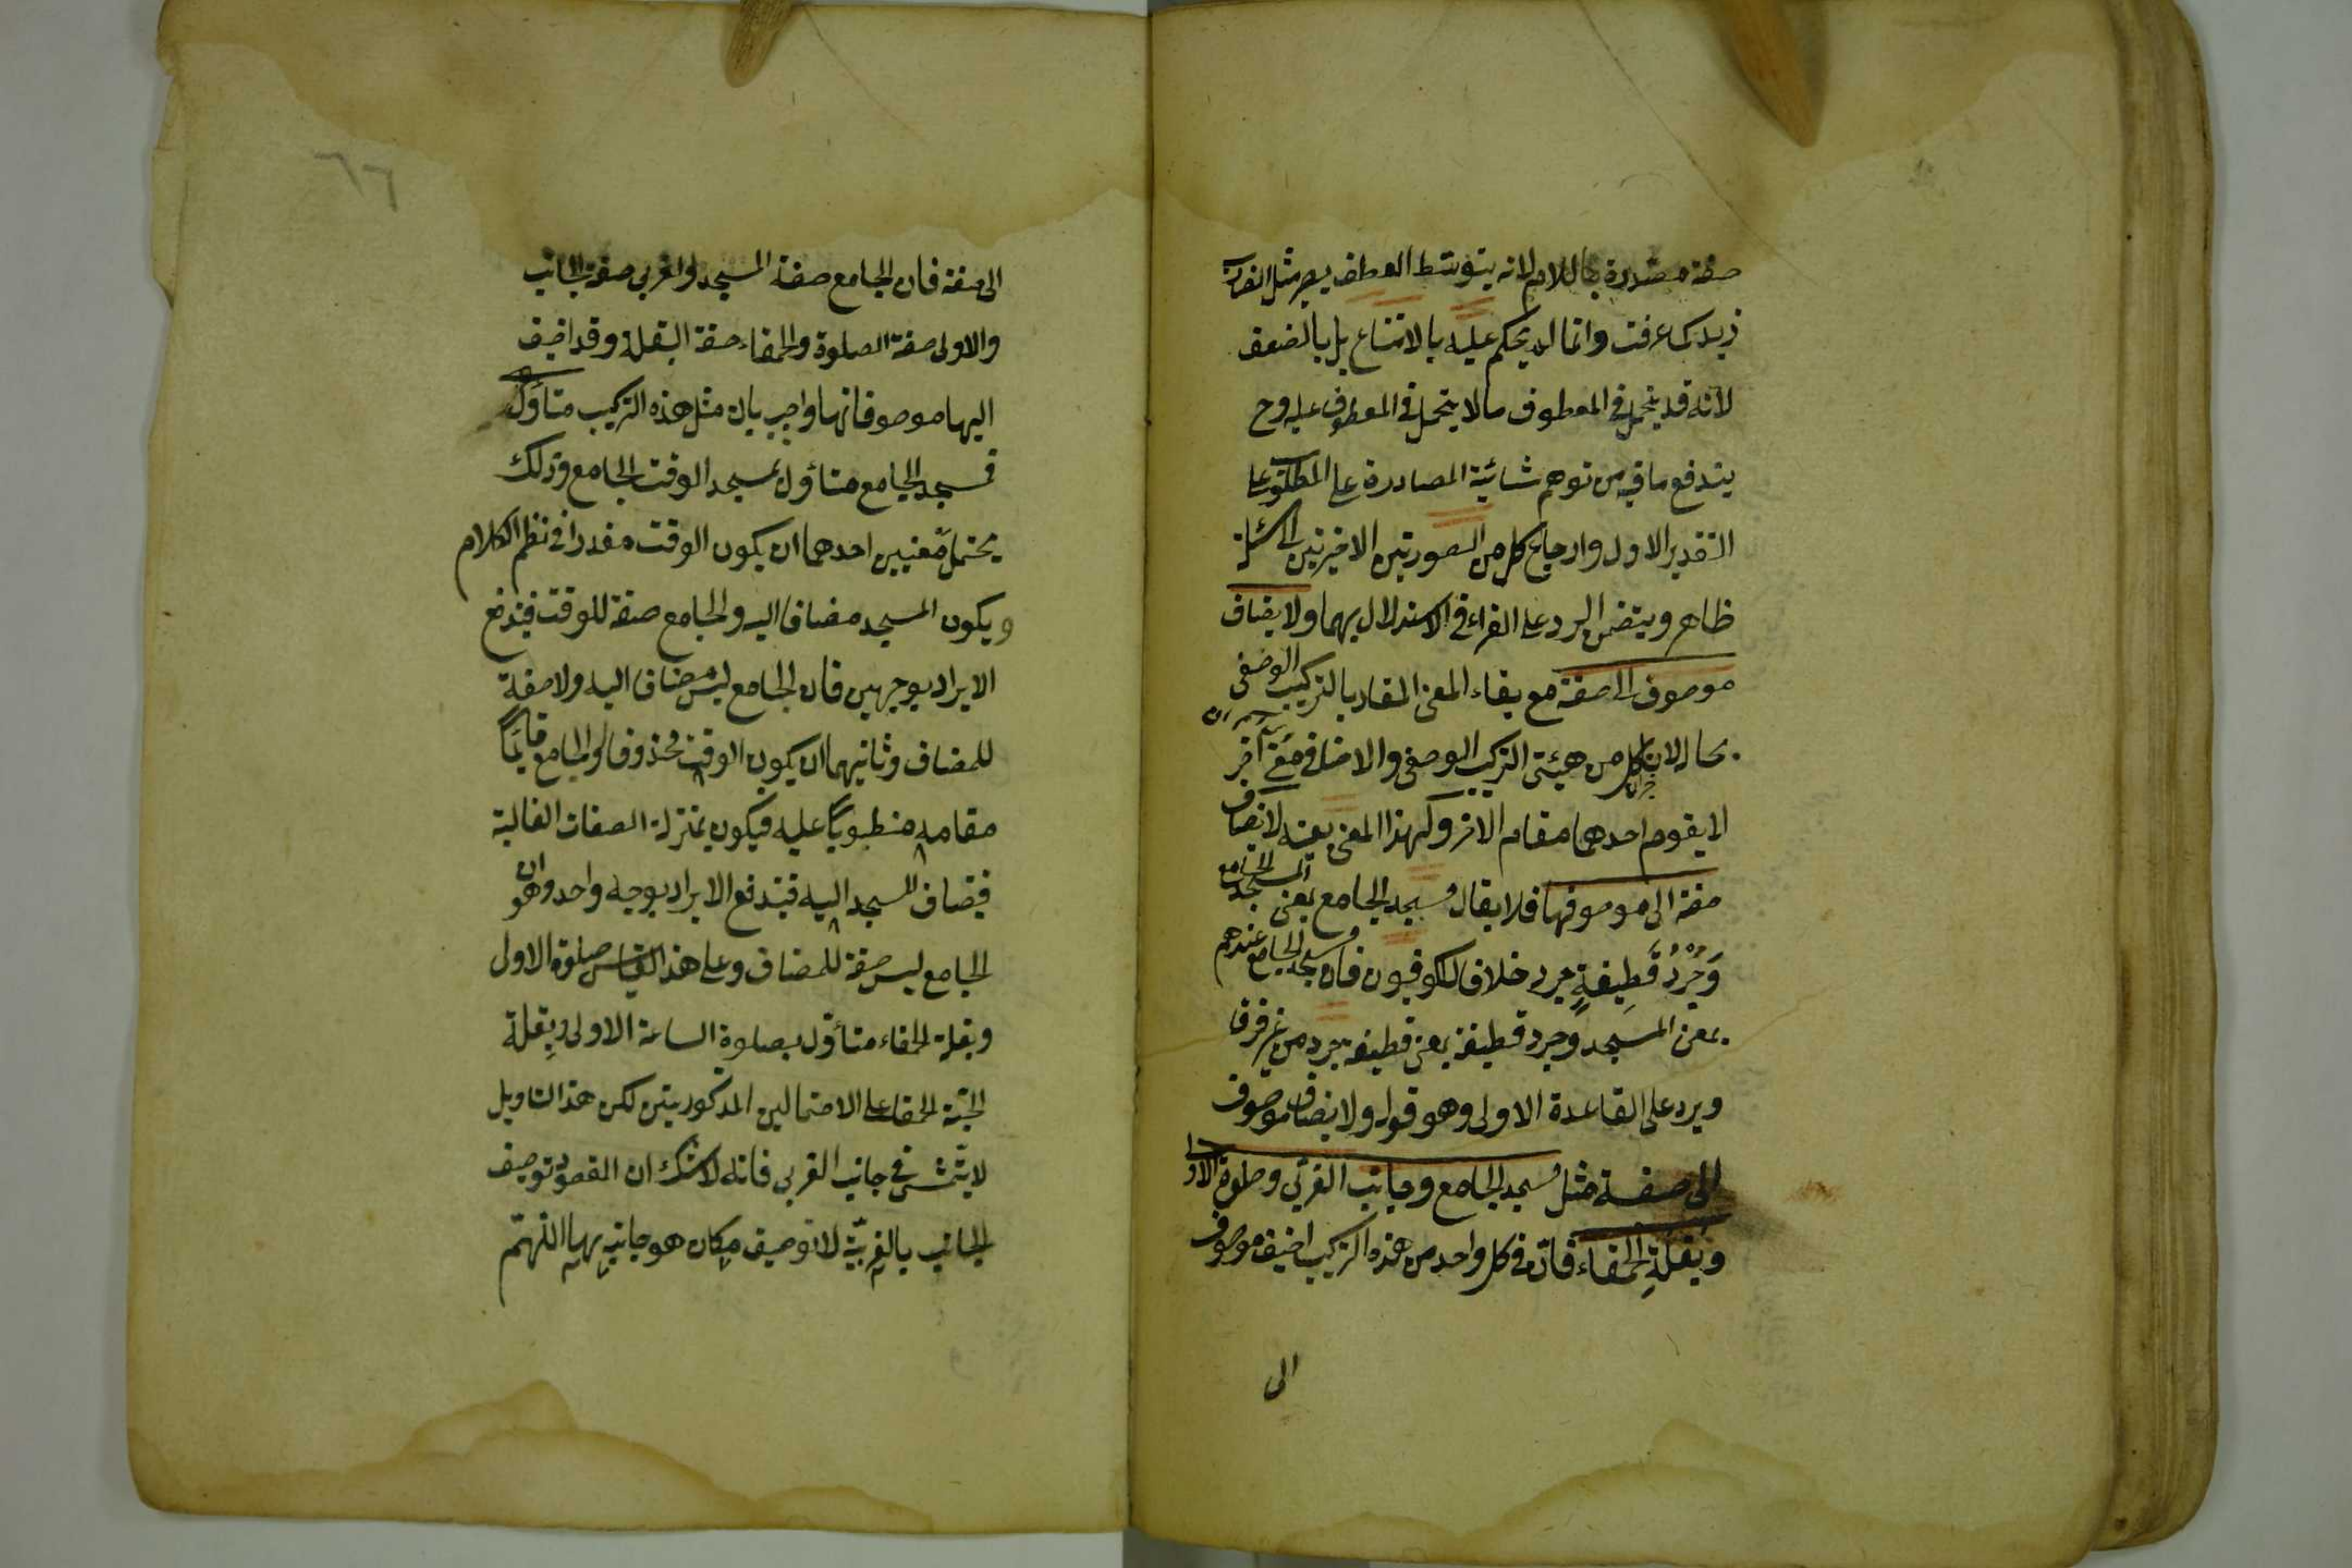 صفة مصدرة باللام لانه بتوسط العطف يصير مثل الضارب
زيد كما عرفت وانما لم يحكم عليه بالامتناع بل بالضعف
لانه قد يتحمل في المعطوف ما لا يتحمل في المعطوف عليه وح
يندفع ما فيه من توهم شائبة المصادرة على المطلوب على
التقدير الاول وارجاع كل من الصورتين الاخيرتين الى مسئلة
ظاهر ويتضمن الرد على الفراء في الاستدلال بهما ولا يضاف
موصوف الى صفته مع بقاء المعنى المفاد بالتركيب الوصفي
بحاله لان لكل من هيئتي التركيب الوصفي والاضافي معنى آخر
لا يقوم احدهما مقام الاخر ولهذا المعنى بعينه لا يضاف
صفة الى موصوفها فلا يقال مسجد الجامع بمعنى المسجد الجامع
وَجُرْدُ قَطِيفةٍ جرد خلافا للكوفيون فان مسجد الجامع عندهم
بمعنى المسجد وجرد قطيفة بمعنى قطيفة جرد من غير فرق
ويرد على القاعدة الاولى وهو قوله ولا يضاف موصوف
الى صفة مثل مسجد الجامع وجانب الغربي وصلوة الاولى
وبقلةِ الحمقاء فان في كل واحد من هذه التركيب اضيف موصوف
الى
٦٦
الى صفة فان الجامع صفة المسجد والغربي صفة الجانب
والاولى صفة الصلوة والحمقاء صفة البقلة وقد اضيف
اليها موصوفاتها واجيب بان مثل هذه التركيب متأول
فمسجد الجامع متأول بمسجد الوقت الجامع وذلك
يحتمل معنيين احدهما ان يكون الوقت مقدرا في نظم الكلام
ويكون المسجد مضافا اليه والجامع صفة للوقت فيندفع
الايراد بوجهين فان الجامع ليس مضافا اليه ولا صفة
للمضاف وثانيهما ان يكون الوقت محذوفا والجامع قائما
مقامه منطويا عليه فيكون بمنزلة الصفات الغالبة
فيضاف المسجد اليه فيندفع الايراد بوجه واحد وهو ان
الجامع ليس صفة للمضاف وعلى هذا القياس صلوة الاولى
وبقلة الحمقاء متأول بصلوة الساعة الاولى وبقلة
الحبّة الحمقاء على الاحتمالين المذكورين لكن هذا التأويل
لا يتمشى في جانب الغربي فانه لا شك ان المقصود توصيف
الجانب بالغربيّة لا توصيف مكان هو جانبه بها اللهمّ